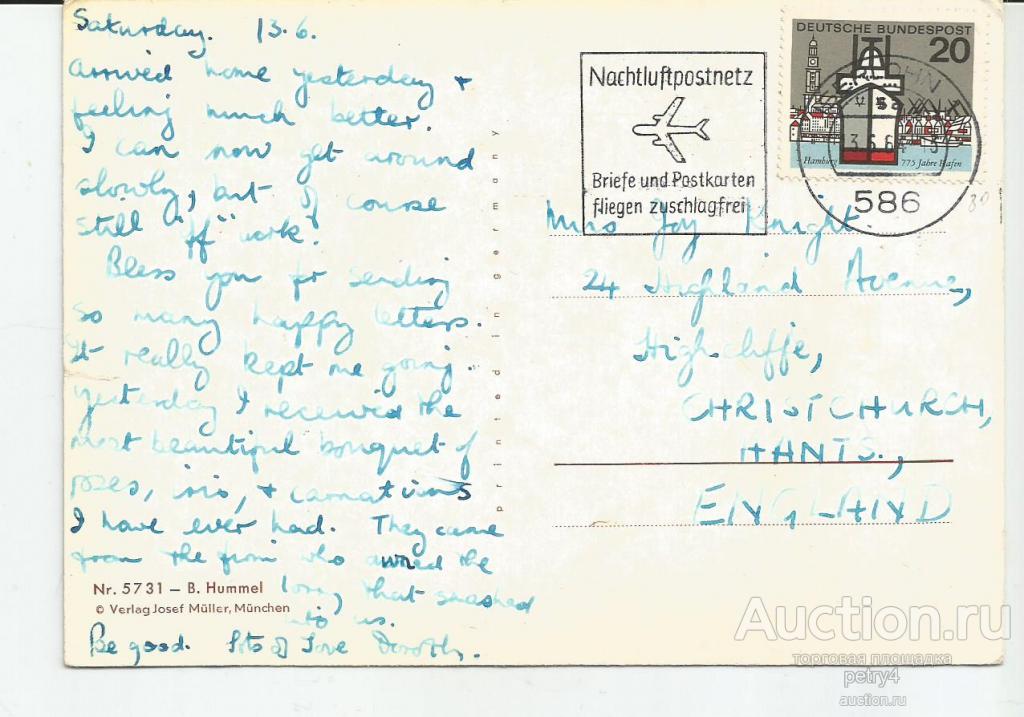 Saturday. 13.6.
Arrived home yesterday +
feeling much better.
I can now get around
slowly, but of course
still "off work".
Bless you for sending
so many happy letters.
It really kept me going.
Yesterday I received the
most beautiful bouquet of
roses, iris, + carnations
I have ever had. They came
from the firm who owned the
lorry that smashed
into us.
Be good. Lots of love Dorothy.
Nr. 5731 – B. Hummel
© Verlag Josef Müller, München
printed in germany
Nachtluftpostnetz
Briefe und Postkarten
fliegen zuschlagfrei
DEUTSCHE BUNDESPOST
20
Hamburg 775 Jahre Hafen
586
Miss Joy Knight.
24 Highland Avenue,
Highcliffe,
CHRISTCHURCH,
HANTS.,
ENGLAND
Auction.ru
торговая площадка
petry4
auction.ru